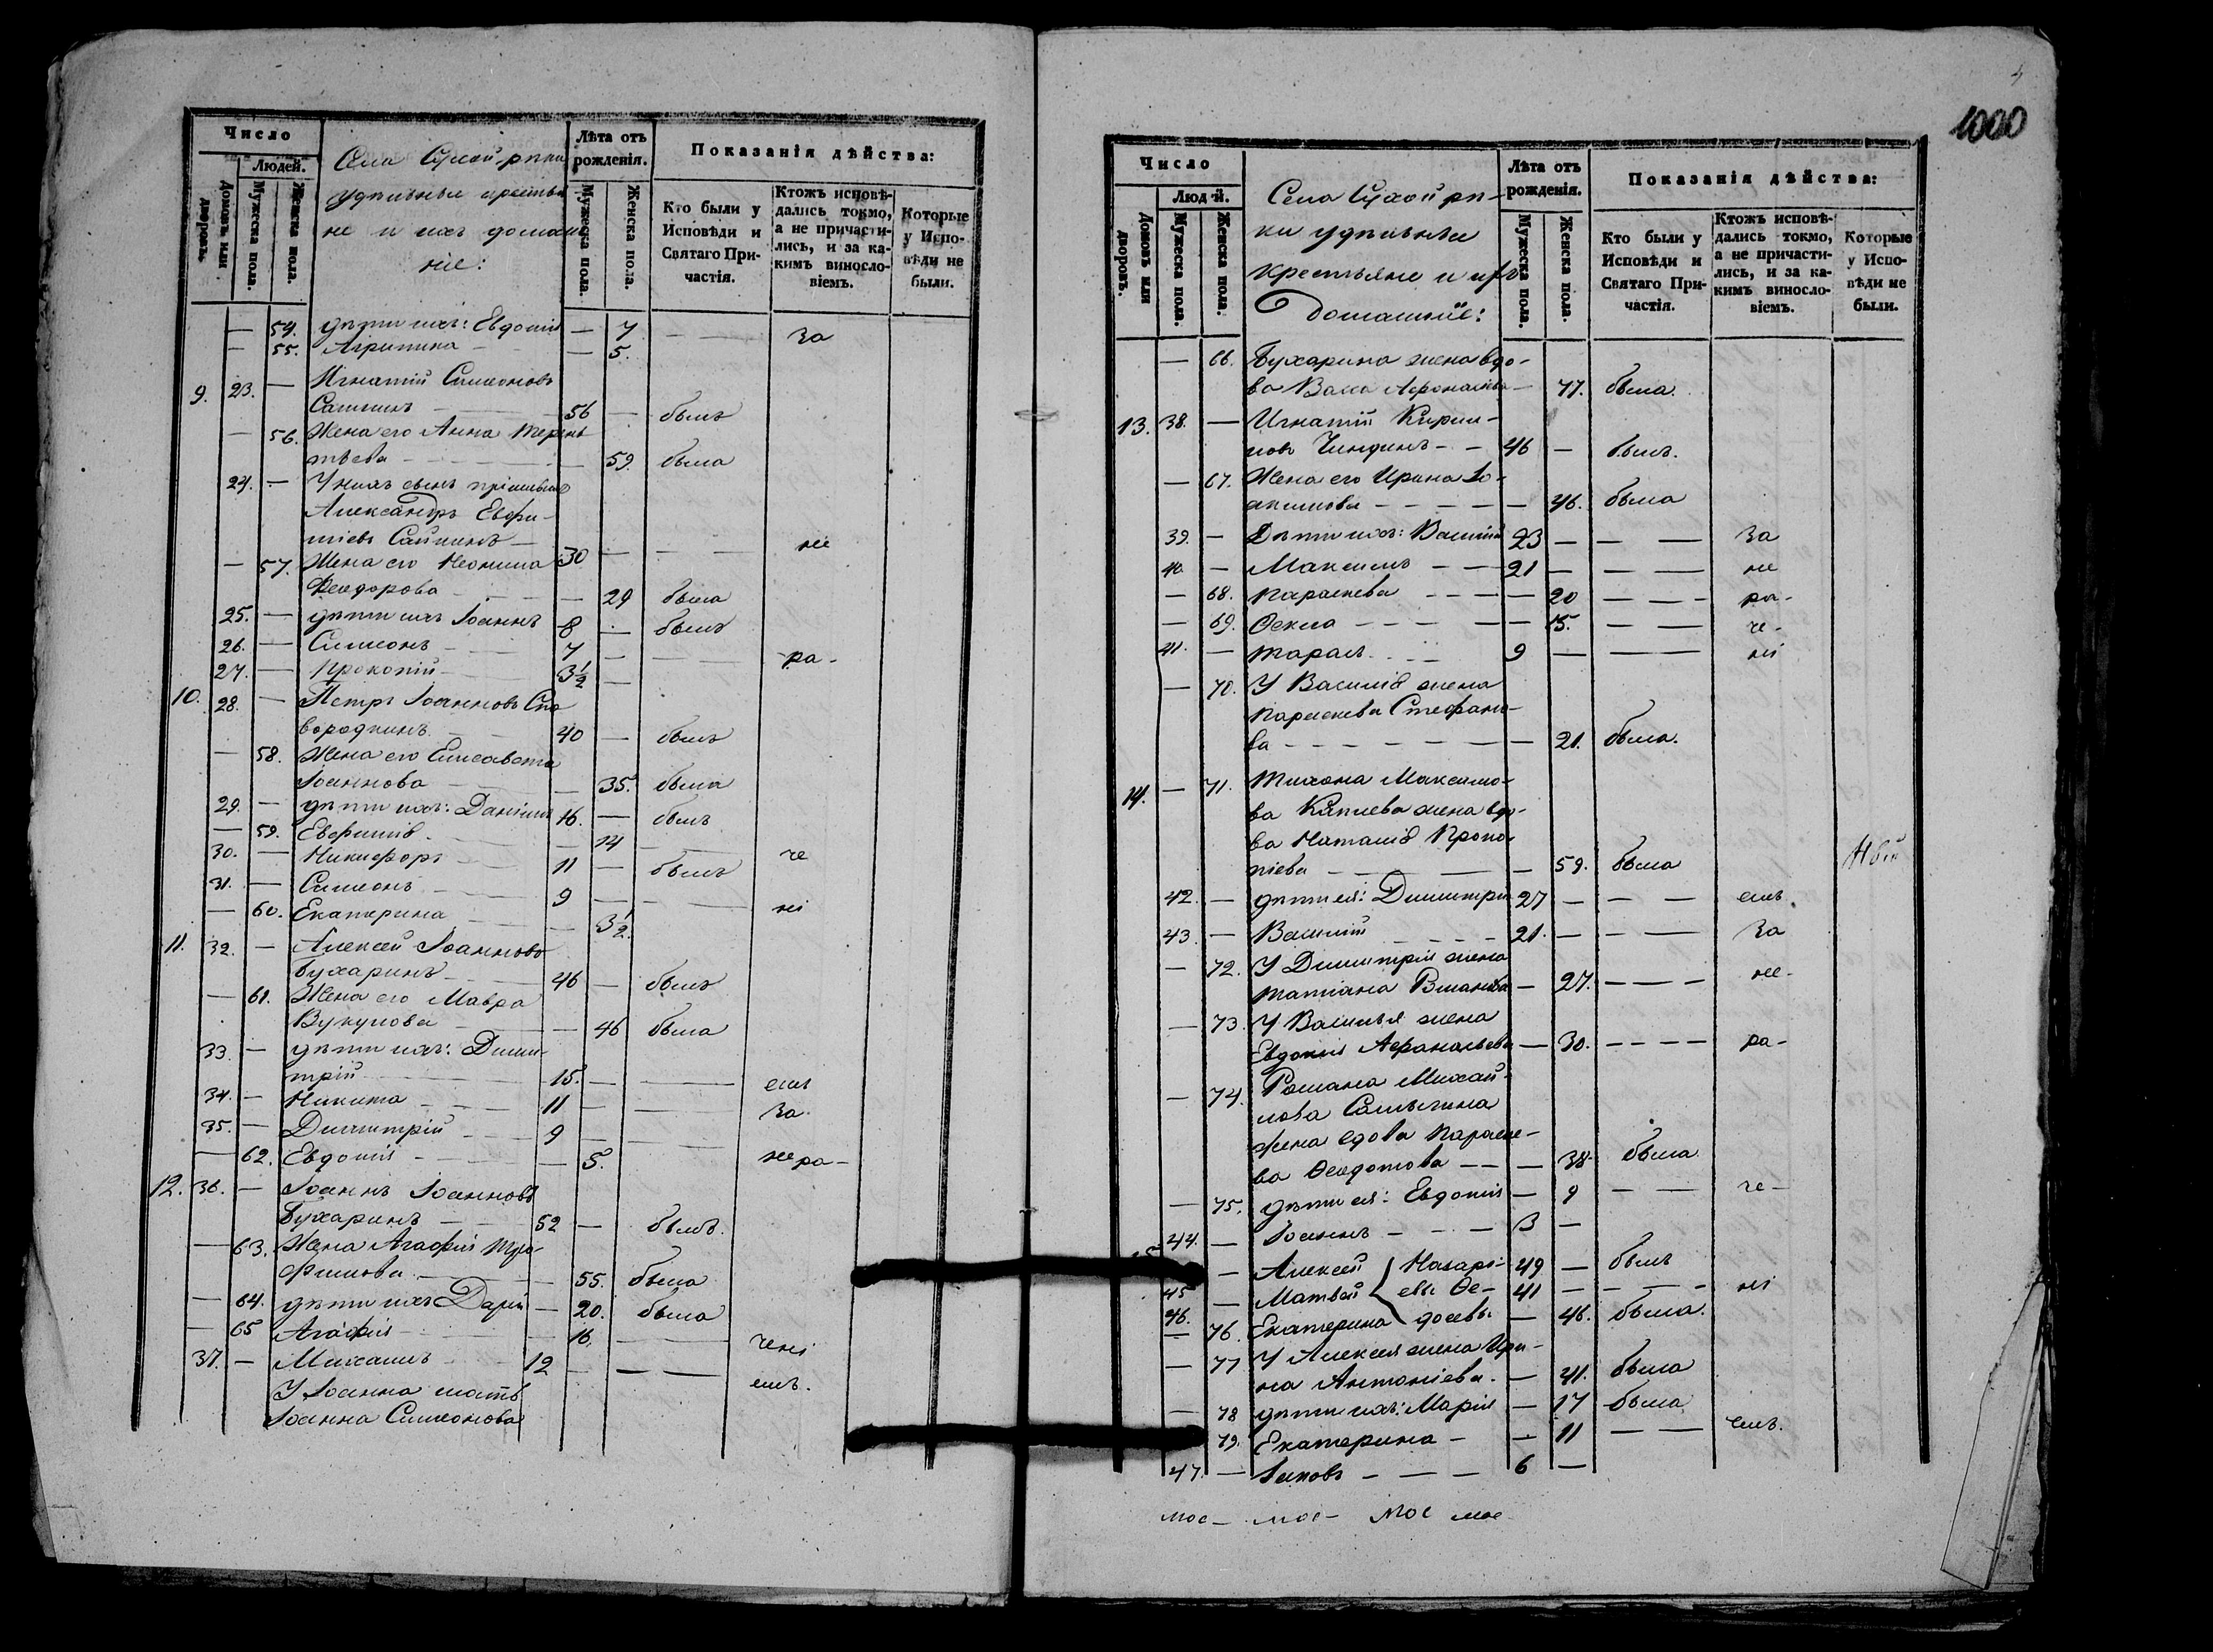 Число
Людей.
Домовъ или дворовъ.
Мужеска пола.
Женска пола.
Села Сухой рѣки
удѣльные крестья
не и ихъ домаш
ніе:
Лѣта отъ рожденія.
Мужеска пола.
Женска пола.
Показанія дѣйства:
Кто были у Исповѣди и Святаго Причастія.
Ктожъ исповѣдались токмо, а не причастились, и за какимъ винословіемъ.
Которые у Исповѣди не были.
— 54. дѣти ихъ: Евдокія — 7 — — за
— 55. Агрипина — — 5.
9. 23. — Игнатій Симеоновъ
56 — былъ
— 56. Жена его Анна Терень
тьева — — 59. была
24. — У нихъ сынъ пріемышъ
Александръ Евфи-
міевъ — 30 — — — не
— 57. Жена его Неонила
Феодорова — — 29 была
25. — дѣти ихъ Іоаннъ 8 — былъ
26. — Симеонъ — 7 — — ра-
27. — Прокопій — 3 1/2 —
10. 28. — Петръ Іоанновъ Ско
вородкинъ — 40 — былъ
— 58. Жена его Елисавета
Іоаннова — — 35. была
29. — дѣти ихъ: Даніилъ 16. — былъ
— 59. Евфимія — — 14 — —
30. — Никифоръ — 11 — былъ че
31. — Симеонъ — 9 — — —
— 60. Екатерина — — 3 1/2. ні
11. 32. — Алексей Іоанновъ
Бухаринъ — 46 — былъ
— 61. Жена его Мавра
Вукулова — — 46 была
33. — дѣти ихъ: Дими-
трій — 15. — — емъ
34. — Никита — 11 — — За
35. — Димитрій — 9 — —
— 62. Евдокія — — 5. не ра-
12. 36. — Іоаннъ Іоанновъ
Бухаринъ — 52 — былъ.
— 63. Жена Агафія Тро-
фимова — — 55. была
— 64. дѣти ихъ Дарія — 20. была
— 65 Агафія — — 16. — чені
37. — Михаилъ 12 — — — емъ.
У Іоанна мать
Іоанна Симеонова
1000
Число
Людей.
Домовъ или дворовъ.
Мужеска пола.
Женска пола.
Села Сухой рѣ-
ки удѣльные
крестьяне и ихъ
Домашніе:
Лѣта отъ рожденія.
Мужеска пола.
Женска пола.
Показанія дѣйства:
Кто были у Исповѣди и Святаго Причастія.
Ктожъ исповѣдались токмо, а не причастились, и за какимъ винословіемъ.
Которые у Исповѣди не были.
— 66. Бухарина жена вдо-
ва Васса Афонасьева — 77. была.
13. 38. — Игнатій Кирил-
ловъ Чиндинъ — 46 — былъ.
— 67. Жена его Ирина Іо-
акимова — — 46. была
39. — Дѣти ихъ: Василій 23 — — — За
40 — Максимъ — 21 — — — не
— 68. Параскева — — 20 — — — ра-
— 69. Фекла — — 15. — — — че-
41. — Тарасъ — 9 — — — ні
— 70. У Василія жена
Параскева Стефано-
ва — — 21. была.
14. — 71. Тихона Максимо-
ва жена вдо-
ва Наталія Проко-
піева — — 59. была
42. — дѣти ея: Димитрій 27 — — — емъ.
43. — Василій — 21. — — — За
— 72. У Димитрія жена
Татіана — 27. — — — не-
— 73. У Василья жена
Евдокія Афанасьева — 30. — — — ра-
— 74. Романа Михай-
лова
жена вдова Параске-
ва Феодотова — — 38. была
— 75. дѣти ея: Евдокія — 9 — — че-
44. — Іоаннъ — 3 —
45 — Алексей Назарі- 49 — былъ
46. — Матвей евы Фе- 41 — — — ні
— 76. Екатерина досевы — 46. была.
— 77 У Алексея жена Ири-
на Антоніева — 41. была
— 78 дѣти ихъ: Марія — 17 была
79. Екатерина — — 11 — — емъ.
47. — Іаковъ — 6 —
мое — мое — мое мое